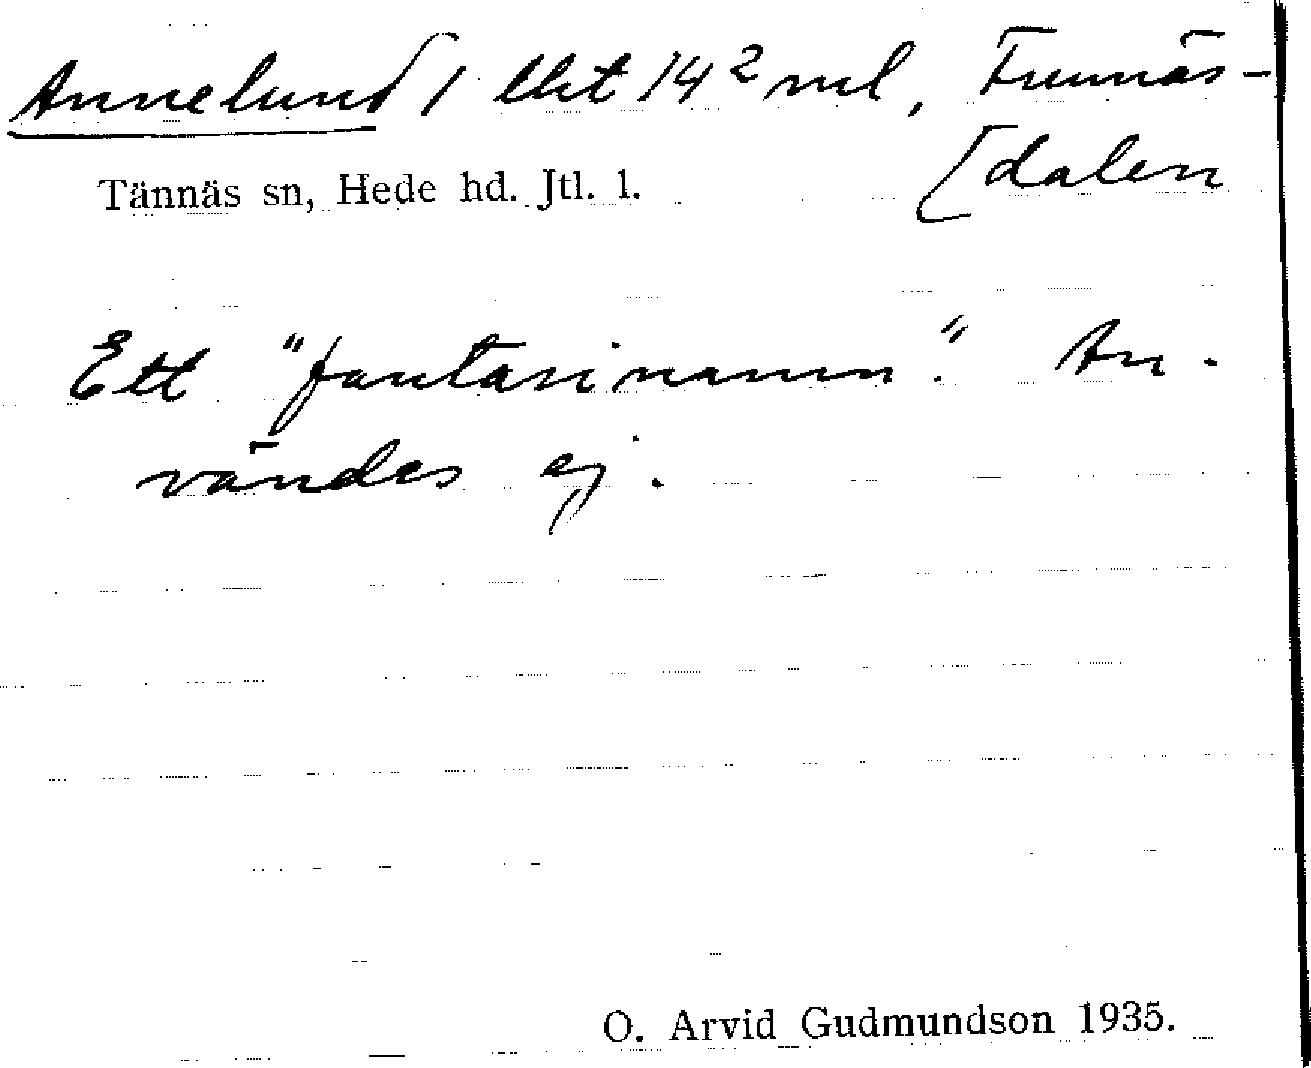 Annelund 1 lht 14² ml, Funnäs-
[dalen
Tännäs sn, Hede hd. Jtl. l.
Ett "fantasinamn". An-
vändes ej.
O. Arvid Gudmundson 1935.